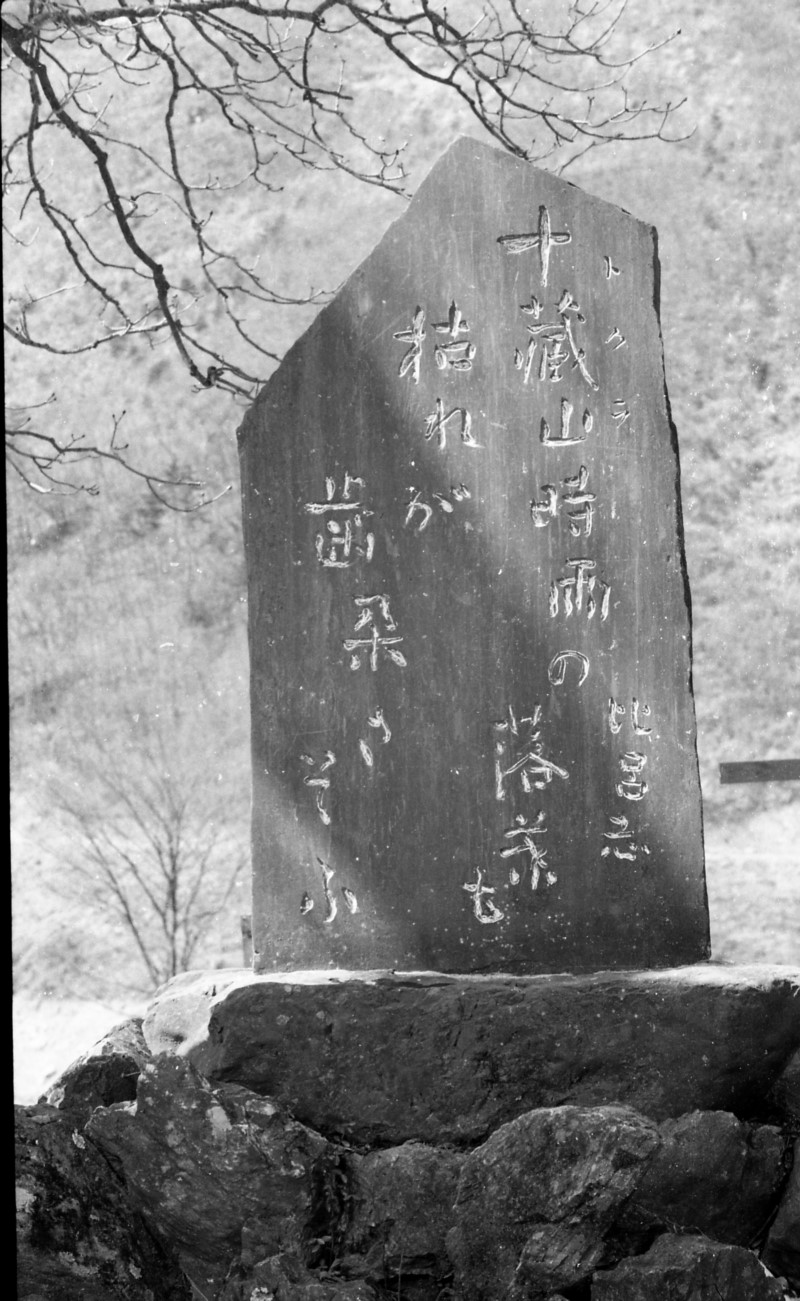 トクラ
十蔵山時雨の
落葉も
枯れが
歯朶
そふ
比呂志